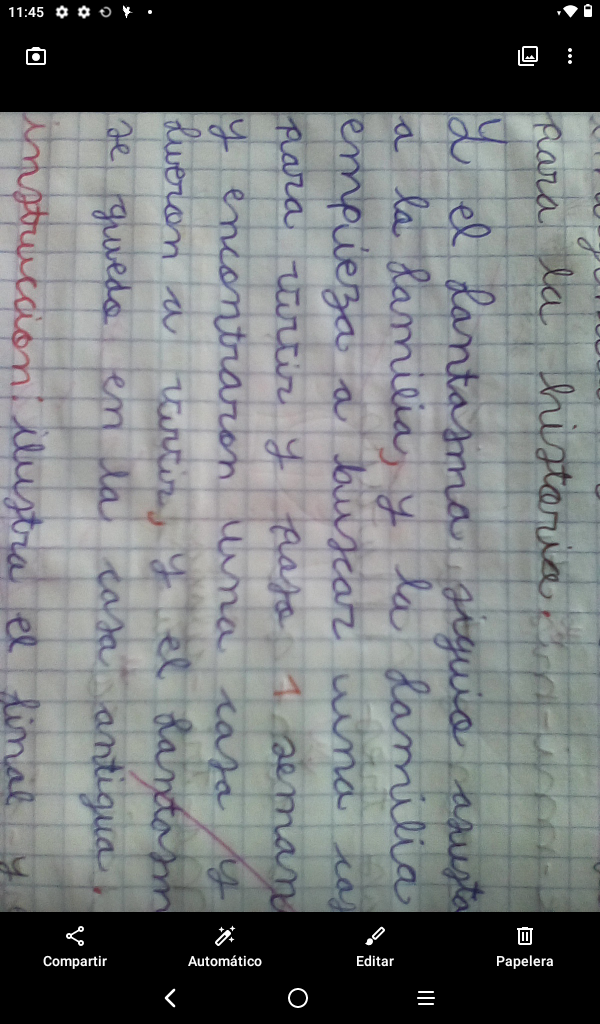 11:45
para la historia.
Y el fantasma siguio asusta
a la familia, y la familia
empieza a buscar una cas
para vivir y paso 1 seman
y encontraron una casa y
fueron a vivir, y el fantasm
se quedo en la casa antigua.
instruccion: ilustra el final y
Compartir Automático Editar Papelera